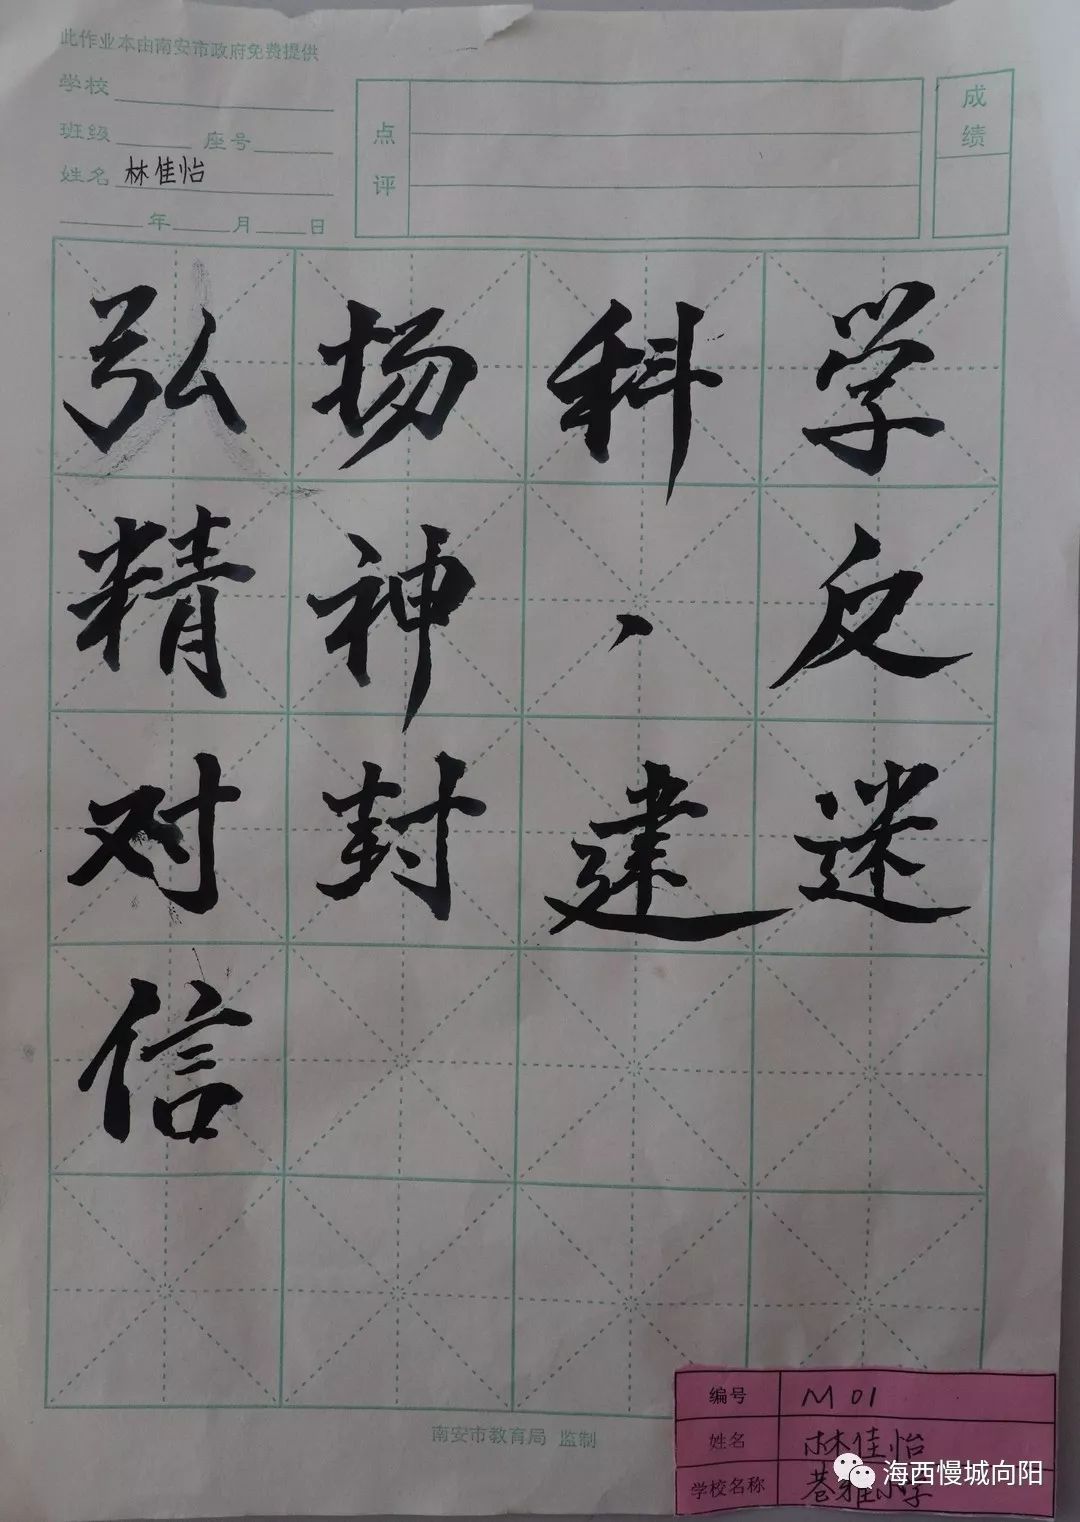 此作业本由南安市政府免费提供
学校
班级 座号
姓名 林佳怡
年 月 日
点评
成绩
弘扬科学
精神、反
对封建迷
信
南安市教育局 监制
编号 M 01
姓名 林佳怡
学校名称 巷雅小学
海西慢城向阳